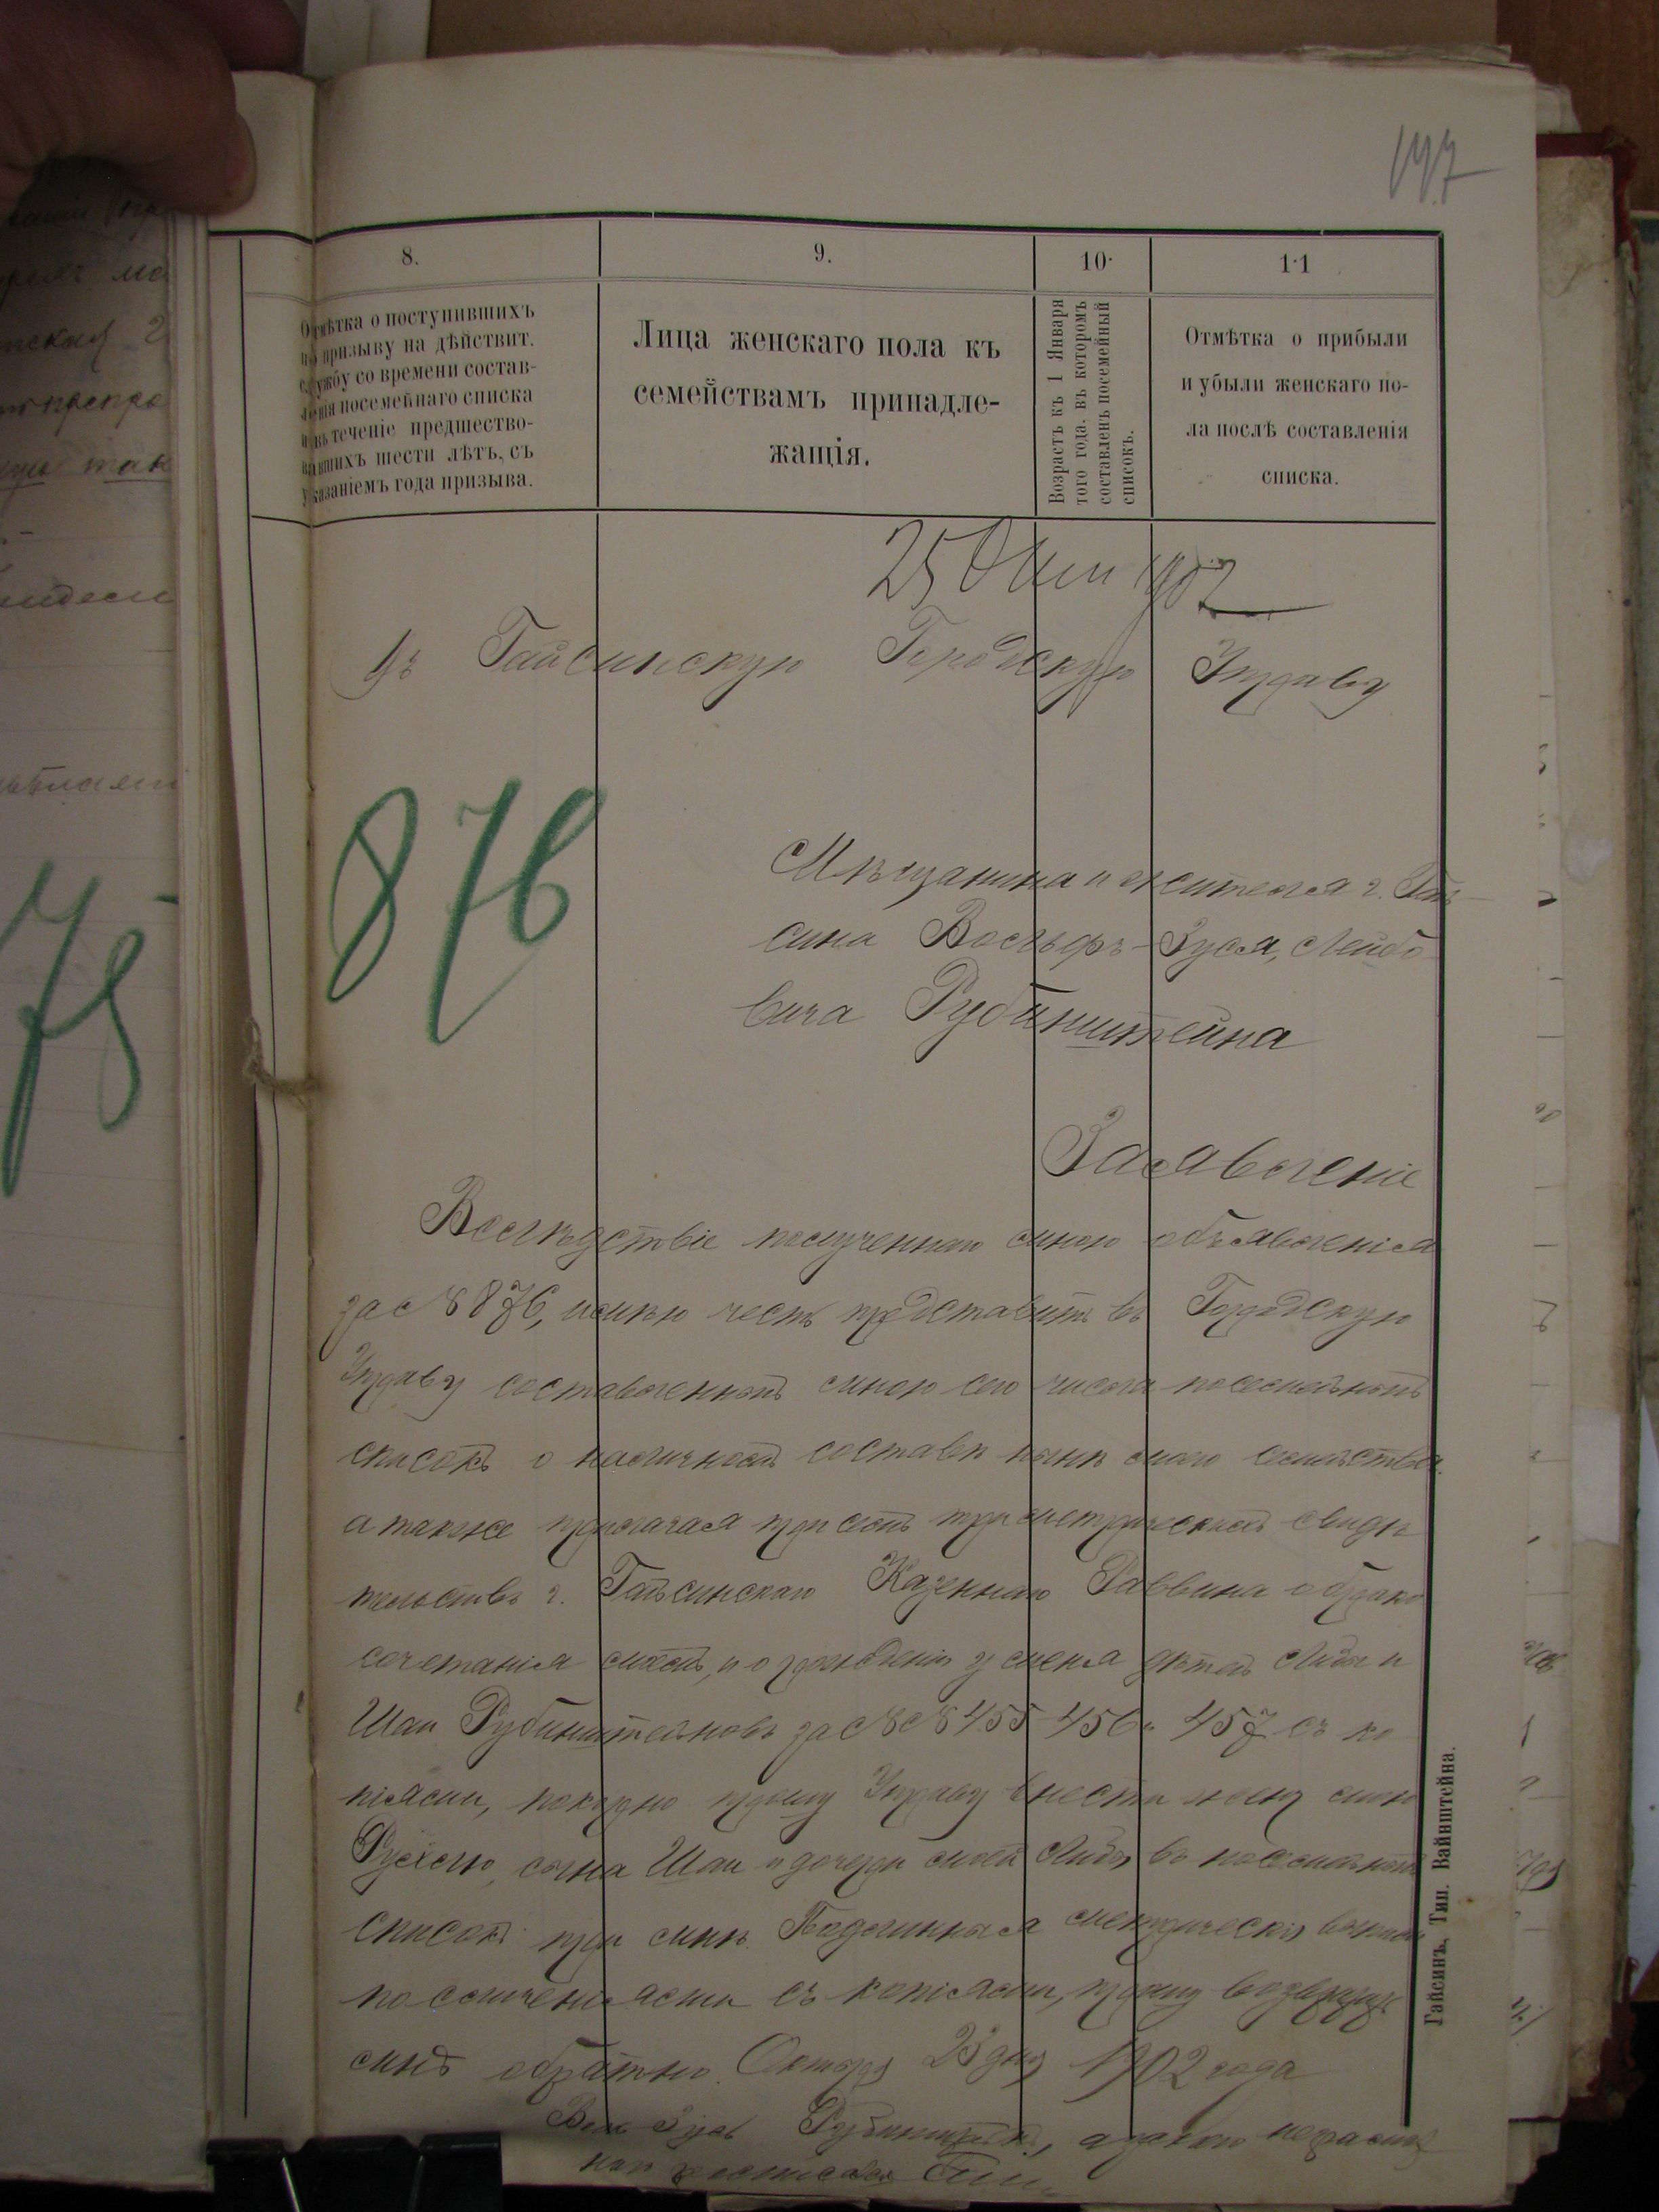 147
8.
9.
10.
11
Отмѣтка о поступившихъ
по призыву на дѣйствит.
службу со времени состав-
ленія посемейнаго списка
и въ теченіе предшество-
вавшихъ шести лѣтъ, съ
указаніемъ года призыва.
Лица женскаго пола къ
семействамъ принадле-
жащія.
Возрастъ къ 1 Января
того года, въ которомъ
составленъ посемейный
списокъ.
Отмѣтка о прибыли
и убыли женскаго по-
ла послѣ составленія
списка.
25 Окт 1902
Въ Гайсинскую Городскую Управу
876
75
Мѣщанина и жителя г. Гай-
сина Вольфъ-Зуся, Лейбо-
вича Рубинштейна
Заявленіе
Вслѣдствіе полученнаго мною объявленія
за № 876, имѣю честь представить въ Городскую
Управу составленный мною сего числа посемейный
списокъ о наличномъ составѣ нынѣ моего семейства,
а также прилагая при семъ три метрическихъ свидѣ
тельствъ г. Гайсинскаго Казеннаго Раввина о брако
сочетанія моемъ, и о рожденіи у меня дѣтей Либы и
Шаи Рубинштейновъ за №№ 455 456 и 457 съ ко
піями, покорно прошу Управу внести жену мою
сына Шаи и дочери моей Либы въ посемейный
списокъ при мнѣ. Подлинныя метрическія выписи
по сличеніями съ копіями, прошу возвратить
мнѣ обратно. Октября 25 дня 1902 года
Рубинштейнъ, а за него неграмот
наго росписался
Гайсинъ, Тип. Вайнштейна.